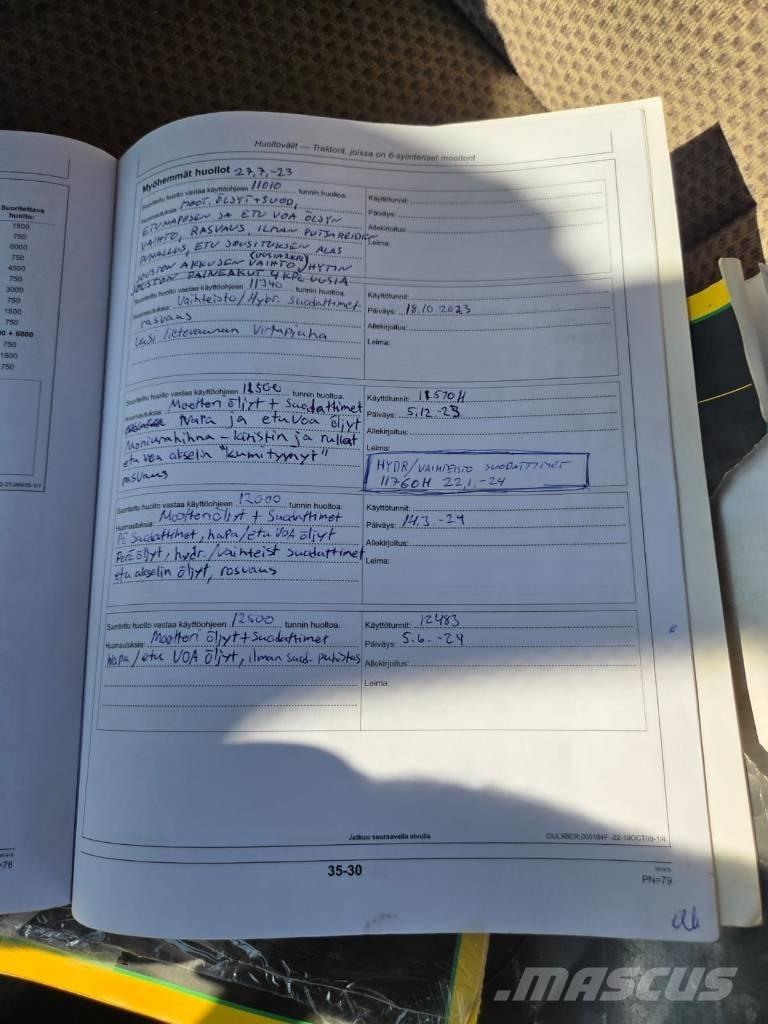 Huoltovälit — Traktorit, joissa on 6-sylinteriset moottorit
Suoritettava
huolto:
1500
750
6000
750
4500
750
3000
750
1500
750
00 + 6000
750
1500
750
Myöhemmät huollot 27,7,-23
Suoritettu huolto vastaa käyttöohjeen 11010 tunnin huoltoa.
Huomautuksia: MOOT, ÖLJYT+SUOD,
ETUNAPOJEN JA ETU VOA ÖLJYN
VAIHTO, RASVAUS, ILMAN PUTSAREIDEN
PUHALLUS, ETU JOUSITUKSEN ALAS
JOUSTON AKKUJEN VAIHTO, (UUSIA 2KPL) HYTIN
JOUSTON PAINEAKUT 4 KPL UUSIA
Käyttötunnit:
Päiväys:
Allekirjoitus:
Leima:
Suoritettu huolto vastaa käyttöohjeen 11340 tunnin huoltoa.
Huomautuksia: Vaihteisto/Hydr. suodattimet
rasvaus
uusi lietevaunun virtapiuha
Käyttötunnit:
Päiväys: 18.10.2023
Allekirjoitus:
Leima:
Suoritettu huolto vastaa käyttöohjeen 11500 tunnin huoltoa.
Huomautuksia: Moottori öljyt + suodattimet
Napa ja etuvoa öljyt
Moniurahihna - kiristin ja rullat
etu voa akselin "kumityynyt"
rasvaus
Käyttötunnit: 11510H
Päiväys: 5.12-23
Allekirjoitus:
Leima:
HYDR/VAIHTEISTO SUODATTIMET
11760H 22,1,-24
Suoritettu huolto vastaa käyttöohjeen 12000 tunnin huoltoa.
Huomautuksia: Moottoriöljyt + Suodattimet
PÖ Suodattimet, napa/etu VOA öljyt
Perä öljyt, hydr./vaihteist suodattimet
etu akselin öljyt, rasvaus
Käyttötunnit:
Päiväys: 14.3 -24
Allekirjoitus:
Leima:
Suoritettu huolto vastaa käyttöohjeen 12500 tunnin huoltoa.
Huomautuksia: Moottori öljyt + suodattimet
Napa/etu VOA öljyt, ilman suod. puhistus
Käyttötunnit: 12483
Päiväys: 5.6. -24
Allekirjoitus:
Leima:
Jatkuu seuraavalla sivulla
OULXBER,000184F -22-18OCT09-1/4
35-30
PN=79
=78
MASCUS